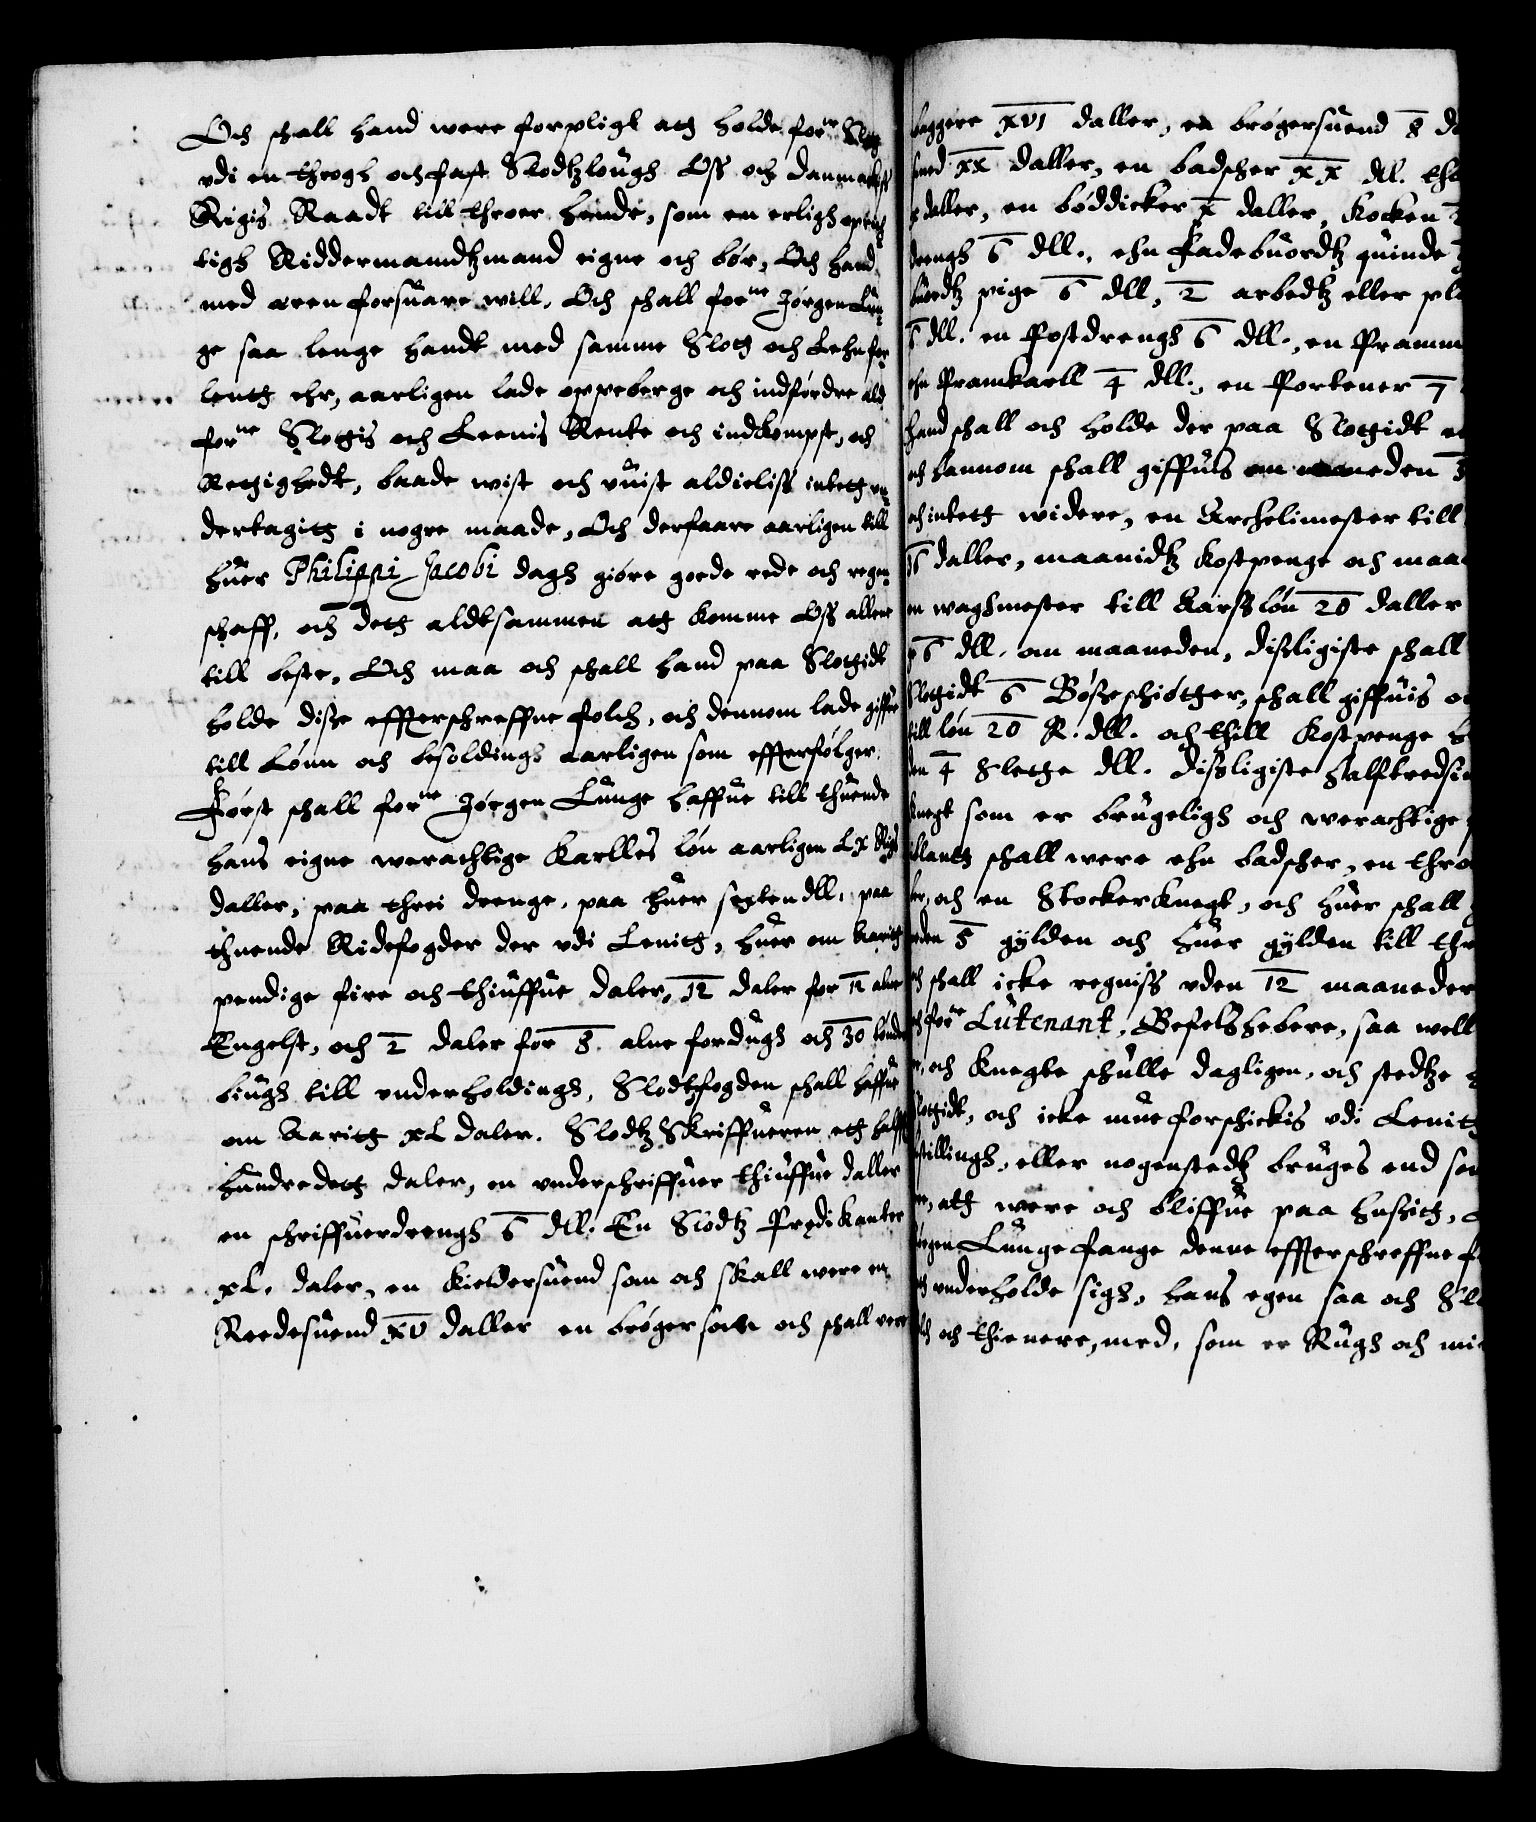 Och schall hand were forpligt att holde forne Slott
vdi en throgh och fast Slodtzlough Oss och Danmarckis
Rigis Raadt till throer hande, som en erligh oprich
tigh Riddermandtzmand eigne och bør, Och hand
med æren forsuare will. Och schall forne Jørgen Lun
ge saa lenge handt med samme Slott och Lehn for
lentt ehr, aarligen lade oppeberge och indfordre ald
forne Slottis och Leenis Rente och indkompst, och
Rettighedt, baade wist och uuist aldielis intett un
dertagitt i nogre maade, Och derfaare aarligen till
huer Philippi Jacobi dagh giøre goede rede och regen
schaff, och dett aldtsammen att komme Oss allene
till beste, Och maa och schall hand paa Slottidt
holde disse effterschreffne folch, och dennom lade giffue
till Lønn och besoldingh aarligen som effterfølger.
Først schall forne Jørgen Lunge haffue till thuende
hans eigne werachtige Karlles løn aarligen Lx Rigs
daller, paa threi drenge, paa huer sexten dll. paa
thuende Ridefogder der vdi Lenitt, huer om Aaritt
pendige fire och thiuffue daler, 12 daler for 12 alne
Engelst, och 2 daler for 8 alne fordugh och 30 tønder
biugh till underholdingh, Slodtzfogden schall haffue
om Aaritt xL daler. Slodtz Skriffueren ett halff
hundredett daler, en underschriffuer thiuffue daller
en schriffuerdrengh 6 dll. En Slodtz Predikanter
xL. daler, en Kieldersuend som och skall were en
Reedesuend xv daller en brøger som och schall vere
baggere xvi daller, en brøgersuend 8 da
smed xx daller, en badscher xx dll. th
daller, en bøddicker x daller, Kocken
drengh 6 dll., ehn Fadebuordtz quinde
buordtz pige 6 dll, 2 arbedtz eller pl
6 dll. en Postdrengh 6 dll., en Pramm
ehn Pramkarll 4 dll., en Portener 7
hand schall och holde der paa Slottidt e
och hannom schall giffuis om maaneden
och intett widere, en Archelimester till
36 daller, maanidtz kostpenge och maa
en waghmester till Aarsløn 20 daller
6 dll. om maaneden, disligiste schall
Slottidt 6 Bøsseschiøtter, schall giffuis
till løn 20 R. dll. och thill Kostpenge h
den 4 Slette dll. Disligiste halftredsi
knegt som er brugeligh och werachtige
iblantt schall were ehn badscher, en thro
och en Stockerknegt, och huer schall
den 5 gylden och huer gylden till thr
schall icke regniss uden 12 maaneder
och forne Lutenant, Befelshebere, saa well
och Knegte schulle dagligen, och stedtze
Slottidt, och icke mue forschickis vdi Lenitt
stillingh, eller nogenstedtz bruges end som
att were och bliffue paa husitt,
Jørgen Lunge fange denne effterschreffne f
underholde sigh, hans egen saa och Sl
och thienere, med, som er Rugh och mi